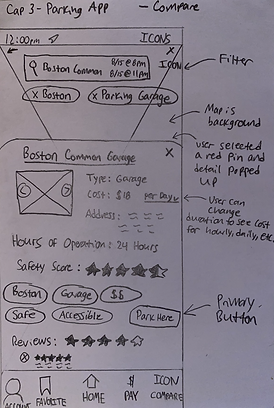 Cap 3 - Parking App — Compare
12:00pm ICONS
X
Boston Common 8/15 @ 8am ICON
8/15 @ 11pm
Filter
x Boston x Parking Garage
Map is
background
user selected
a red Pin and
detail popped
up
Boston Common Garage X
Type: Garage
Cost: $18 per Day
Address:
User can
change
duration to see cost
for hourly, daily, etc.
Hours of Operation: 24 Hours
Safety Score:
Boston Garage $$
Safe Accessible Park Here
Primary
Button
Reviews:
ACCOUNT FAVORITE HOME PAY ICON
COMPARE